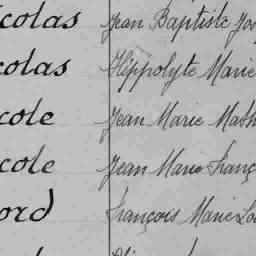 colas Jean Baptiste Jos
colas Hippolyte Marie
cole Jean Marie Math
cole Jean Marie Franç
ord François Marie Lo